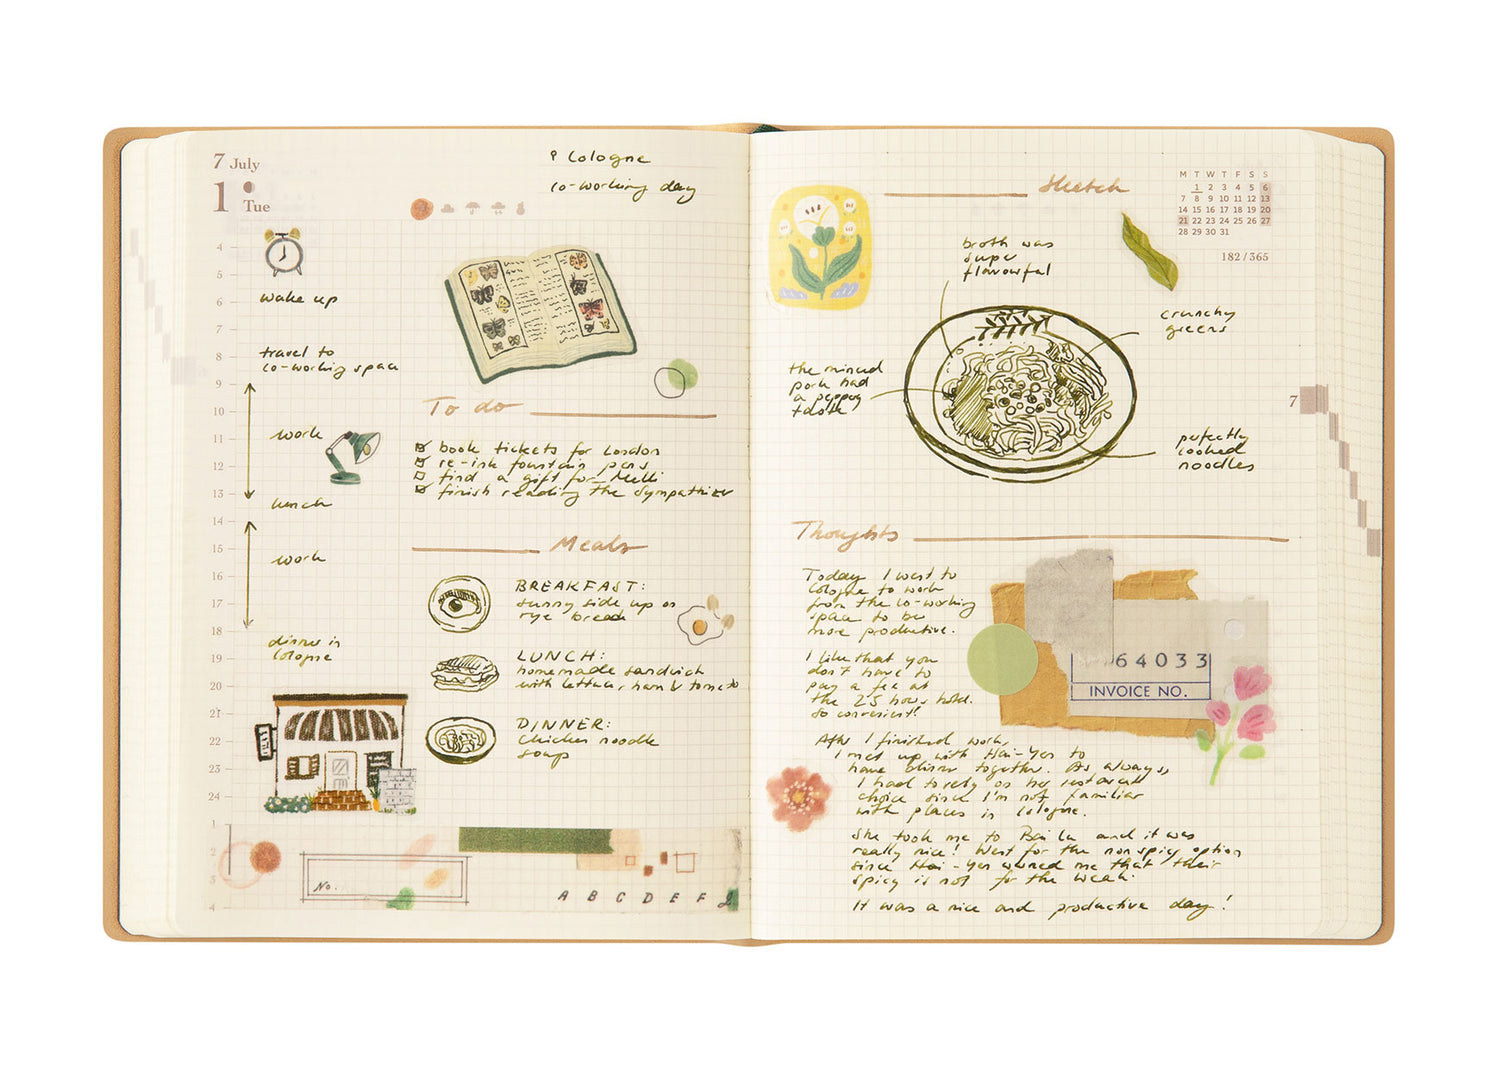 7 July
1 Tue
Cologne
co-working day
4
5
6
7
8
9
10
11
12
13
14
15
16
17
18
19
20
21
22
23
24
1
2
3
4
wake up
travel to
co-working space
work
lunch
work
dinner in
Cologne
To do
book tickets for London
re-ink fountain pens
find a gift for Melli
finish reading the Sympathizer
Meals
BREAKFAST:
sunny side up on
rye bread
LUNCH:
homemade sandwich
with lettuce, ham & tomato
DINNER:
chicken noodle
soup
No.
A B C D E F
Sketch
M T W T F S S
1 2 3 4 5 6
7 8 9 10 11 12 13
14 15 16 17 18 19 20
21 22 23 24 25 26 27
28 29 30 31
182/365
7
broth was
super
flavourful
crunchy
greens
the minced
pork had
a peppery
perfectly
cooked
noodles
Thoughts
Today I went to
Cologne to work
from the co-working
space to be
more productive.
I like that you
don't have to
pay a fee at
the 25 hours hotel.
So convenient!
64033
INVOICE NO.
After I finished work,
I met up with Hai-Yen to
have dinner together. As always,
I had to rely on her restaurant
choice since I'm not familiar
with places in Cologne.
She took me to Bai Lu and it was
really nice! Went for the non spicy option
since Hai-Yen warned me that their
spicy is not for the weak.
It was a nice and productive day!